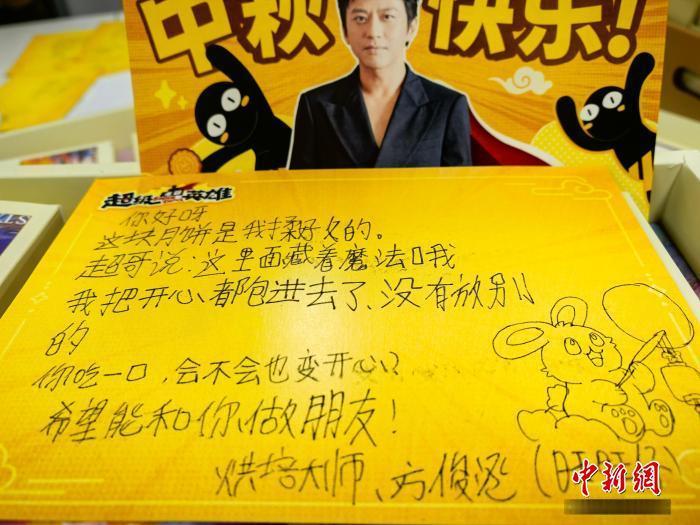 中秋 快乐!
超级 英雄
你好呀
这块月饼是我揉好久的。
超哥说:这里面藏着魔法
我把开心都包进去了、没有放别
的
你吃一口,会不会也变开心?
希望能和你做朋友!
烘培大师、方俊
中新網